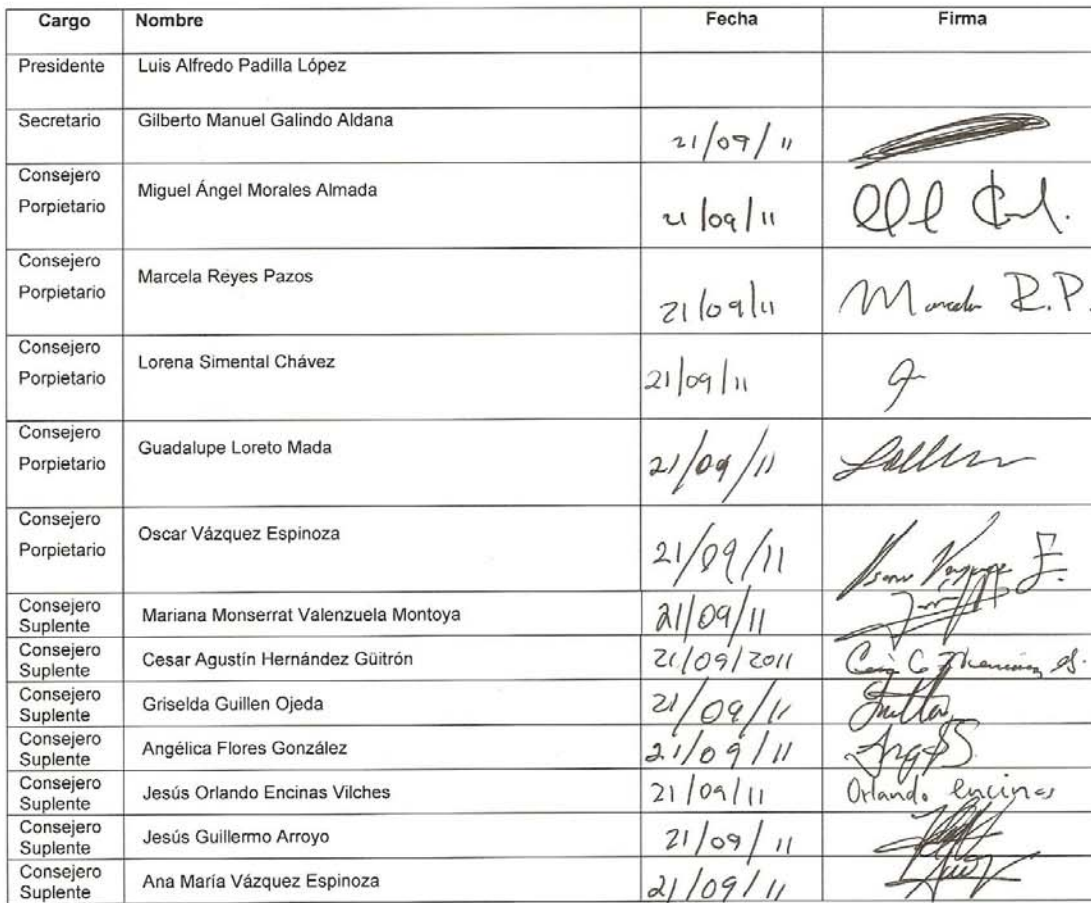 Cargo Nombre Fecha Firma
Presidente Luis Alfredo Padilla López
Secretario Gilberto Manuel Galindo Aldana 21/09/11
Consejero
Porpietario Miguel Ángel Morales Almada 21/09/11
Consejero
Porpietario Marcela Reyes Pazos 21/09/11 Marcela R.P.
Consejero
Porpietario Lorena Simental Chávez 21/09/11
Consejero
Porpietario Guadalupe Loreto Mada 21/09/11
Consejero
Porpietario Oscar Vázquez Espinoza 21/09/11 Oscar Vázquez E.
Consejero
Suplente Mariana Monserrat Valenzuela Montoya 21/09/11
Consejero
Suplente Cesar Agustín Hernández Güitrón 21/09/2011
Consejero
Suplente Griselda Guillen Ojeda 21/09/11
Consejero
Suplente Angélica Flores González 21/09/11
Consejero
Suplente Jesús Orlando Encinas Vilches 21/09/11 Orlando Encinas
Consejero
Suplente Jesús Guillermo Arroyo 21/09/11
Consejero
Suplente Ana María Vázquez Espinoza 21/09/11